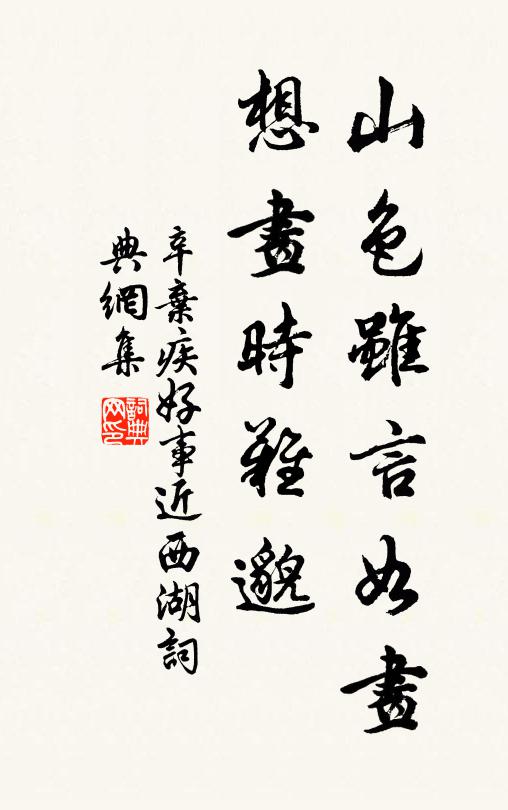 山色雖言如畫
想畫時難邈
辛棄疾好事近西湖詞
典網集
詞典網印